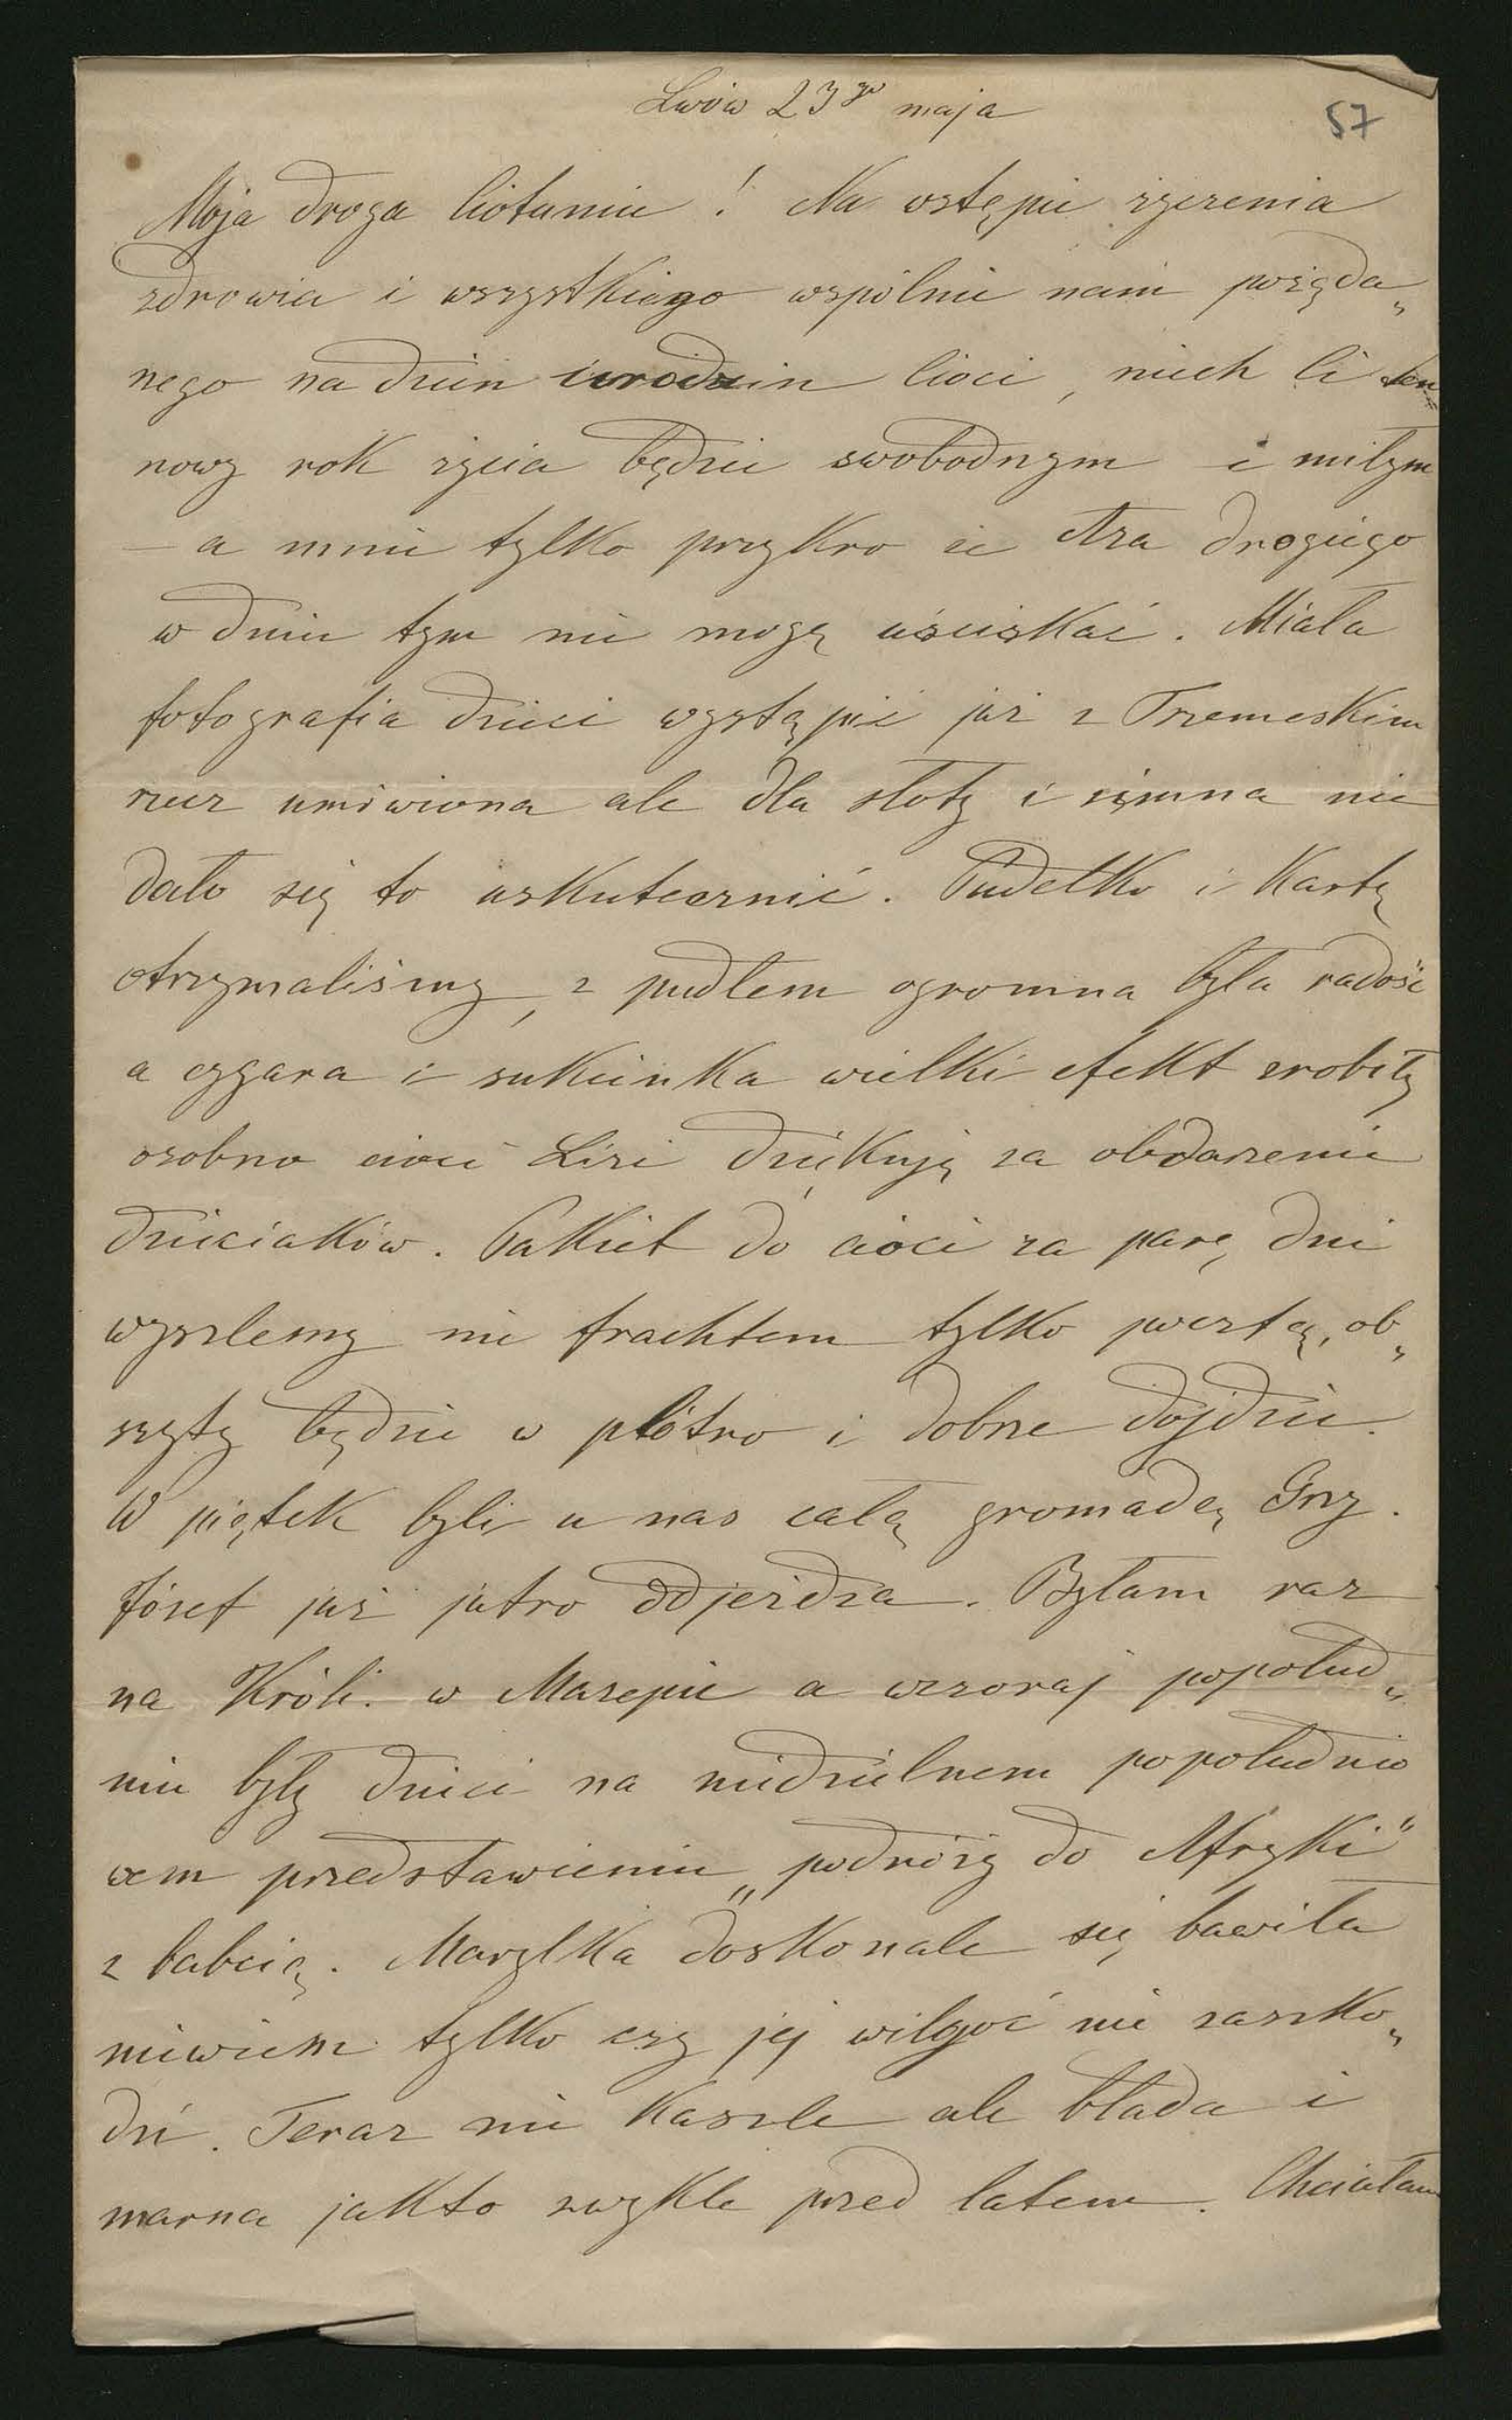 Lwów 23go maja
57
Moja droga Ciotuniu! Na wstępie życzenia
zdrowia i wszystkiego wspólnie nam pożąda„
nego na dzień urodzin Cioci, niech Ci ten
nowy rok życia będzie swobodnym i miłym
— a mnie tylko przykro że Aza drogiego
w dniu tym nie mogę uściskać. Miała
fotografia dzieci wystąpić już z Trzemeskim
rzecz umówiona ale dla słoty i zimna nie
dało się to uskutecznić. Pudełko i Kartę
otrzymaliśmy, z pudłem ogromna była radość
a cygara i sukienka wielki efekt zrobiły
osobno cioci Lizi dziękuję za obdarzenie
dzieciaków. Pakiet do cioci za parę dni
wyszlemy nie frachtem tylko pocztą, ob„
szyty będzie w płótno i dobrze dojdzie.
W piątek byli u nas całą gromadą Grzy.
Józef już jutro odjeżdża. Byłam raz
na Króli. w Mazepie a wczoraj popołud„
niu były dzieci na niedzielnem popołudnio
wem przedstawieniu „podróży do Afryki"
z babcią. Marylka doskonale się bawiła
niewiem tylko czy jej wilgoć nie zaszko„
dzi. Teraz nie Kaszle ale blada i
marna jakto zwykle przed latem. Chciałam